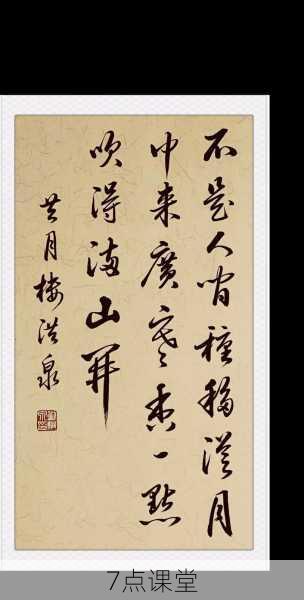 不是人間種移從月
中來廣寒香一點
吹得滿山開
月樓洪泉
7点课堂